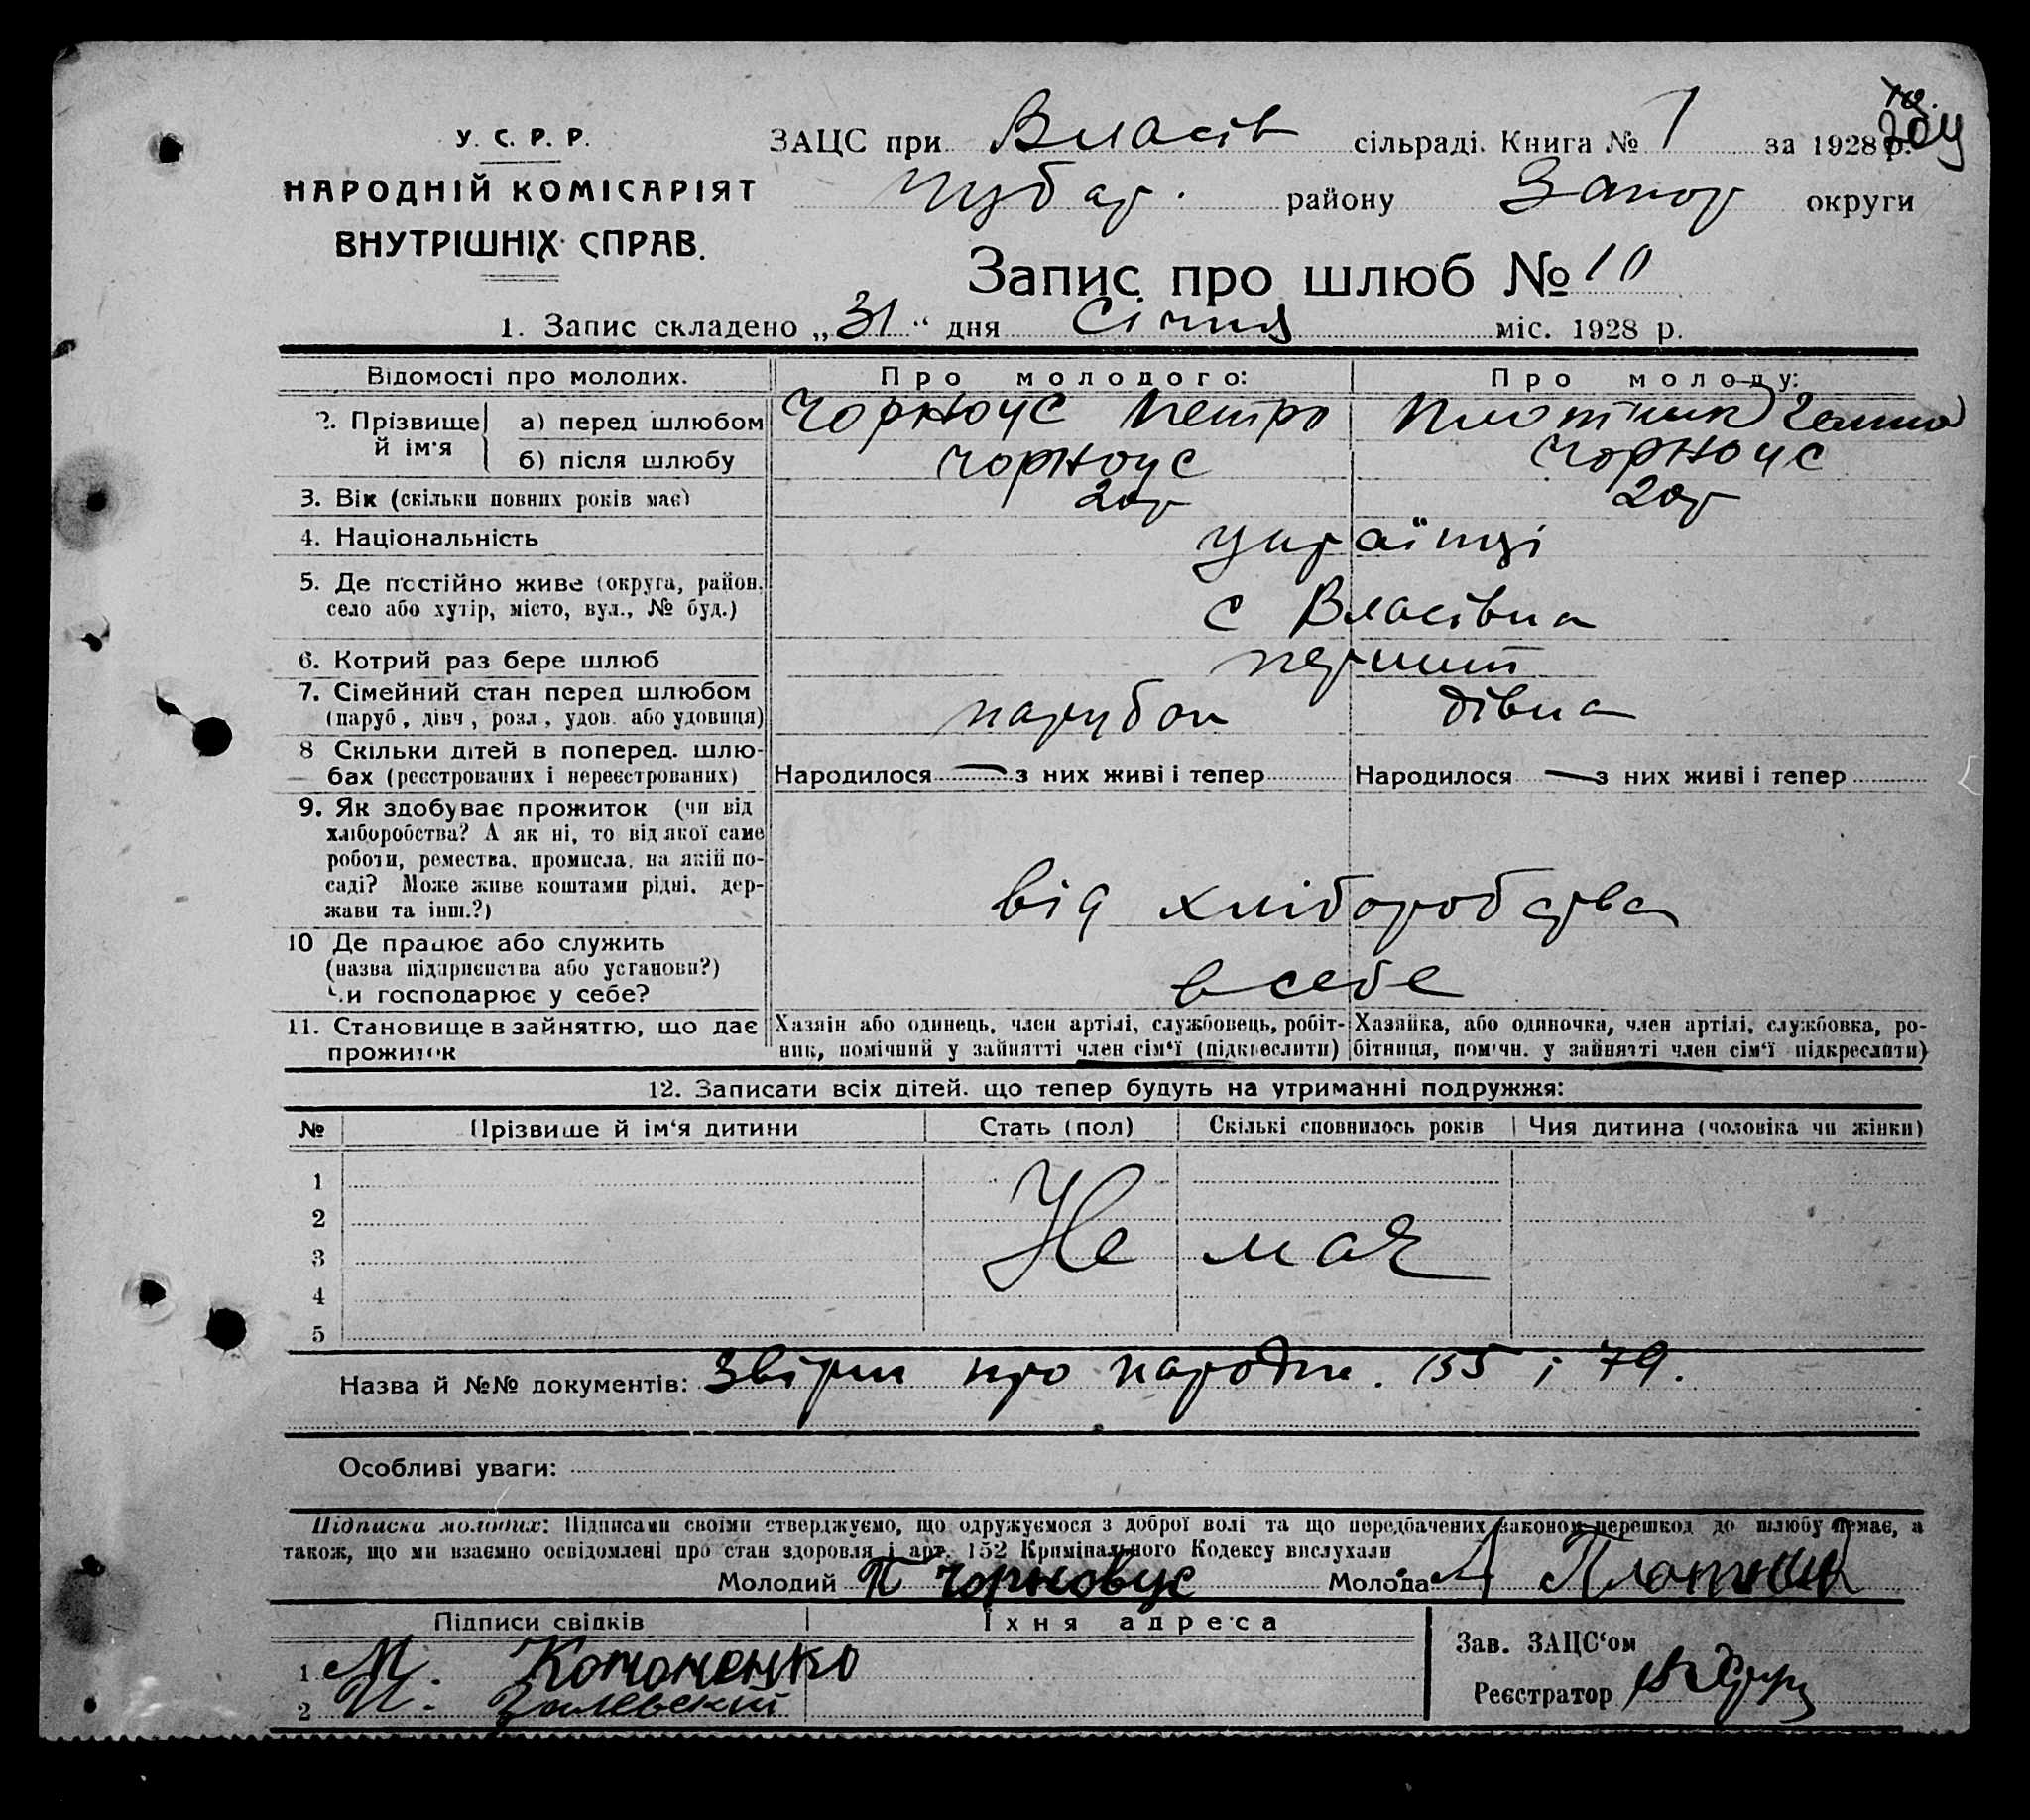 У. С. Р. Р.
НАРОДНІЙ КОМІСАРІЯТ
ВНУТРІШНІХ СПРАВ.
ЗАЦС при Власів сільраді. Книга № 1 за 1928 р.
Чубар. району Запор округи
Запис про шлюб № 10
1. Запис складено „31“ дня Січня міс. 1928 р.
Відомості про молодих. Про молодого: Про молоду:
2. Прізвище й ім'я а) перед шлюбом Чорноус Петро Плотник Галина
б) після шлюбу Чорноус Чорноус
3. Вік (скільки повних років має) 20р 20р
4. Національність українці
5. Де постійно живе (округа, район,
село або хутір, місто, вул., № буд.) с Власівка
6. Котрий раз бере шлюб перший
7. Сімейний стан перед шлюбом
(паруб, дівч, розл, удов. або удовиця) парубок дівка
8 Скільки дітей в поперед. шлю-
бах (реєстрованих і нереєстрованих) Народилося — з них живі і тепер Народилося — з них живі і тепер
9. Як здобуває прожиток (чи від
хліборобства? А як ні, то від якої саме
роботи, ремества, промисла, на якій по-
саді? Може живе коштами рідні, дер-
жави та інш.?) від хліборобства
10 Де працює або служить
(назва підприємства або установи?)
Чи господарює у себе? в себе
11. Становище в зайняттю, що дає Хазяїн або одинець, член артілі, службовець, робіт- Хазяйка, або одиночка, член артілі, службовка, ро-
прожиток ник, помічний у зайнятті член сім'ї (підкреслити) бітниця, помічн. у зайнятті член сім'ї підкреслити)
12. Записати всіх дітей. що тепер будуть на утриманні подружжя:
№ Прізвише й ім'я дитини Стать (пол) Скількі сповнилось років Чия дитина (чоловіка чи жінки)
1
2
3 Не має
4
5
Назва й №№ документів: Звірки про народж. 155 і 79.
Особливі уваги:
Підписка молодих: Підписами своїми стверджуємо, що одружуємося з доброї волі та що передбачених законом перешкод до шлюбу немає, а
також, що ми взаємно освідомлені про стан здоровля і арт. 152 Кримінального Кодексу вислухали
Молодий П Чорновус Молода А Плотник
Підписи свідків Їхня адреса
Зав. ЗАЦС'ом
1 М. Кононенко
Реєстратор
2